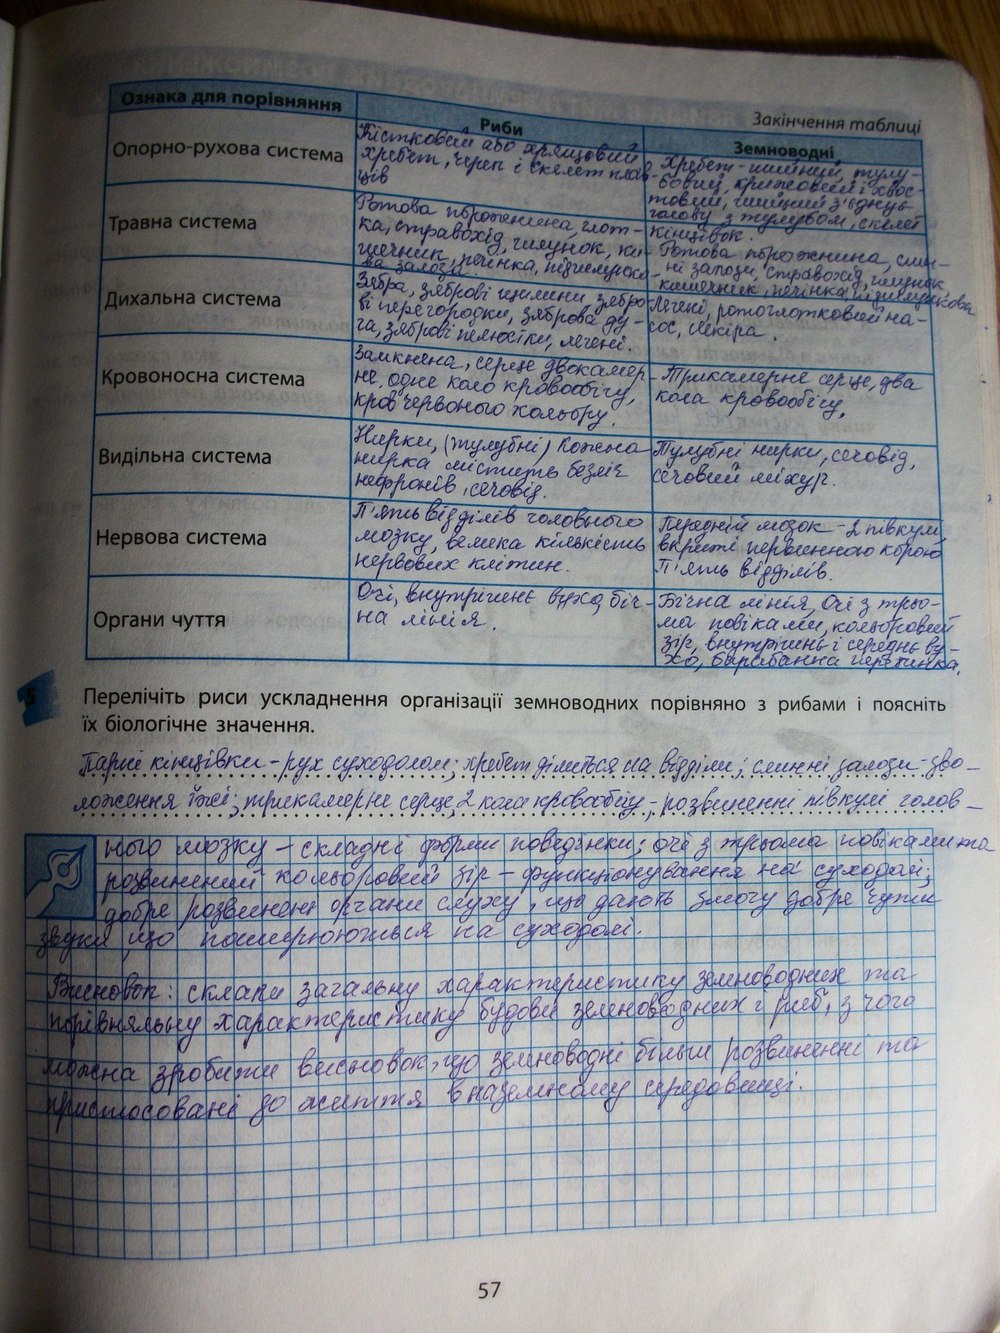 Закінчення таблиці
Ознака для порівняння
Риби
Земноводні
Опорно-рухова система
Кістковий або хрящовий
хребет, череп і скелет плав-
ців
Хребет - шийний, тулу-
бовий, крижовий і хвос-
товий, шийний з'єднує
голову з тулубом, скелет
кінцівок.
Травна система
Ротова порожнина, глот-
ка, стравохід, шлунок, ки-
шечник, печінка, підшлунко-
ва залоза
Ротова порожнина, слин-
ні залози, стравохід, шлунок,
кишечник, печінка, підшлункова
Дихальна система
Зябра, зяброві щілини, зябро-
ві перегородки, зяброва ду-
га, зяброві пелюстки, легені.
Легені, ротоглотковий на-
сос, шкіра.
Кровоносна система
Замкнена, серце двокамер-
не, одне коло кровообігу,
кров червоного кольору.
Трикамерне серце, два
кола кровообігу.
Видільна система
Нирки, (тулубні) Кожна
нирка містить безліч
нефронів, сечовід.
Тулубні нирки, сечовід,
сечовий міхур.
Нервова система
П'ять відділів головного
мозку, велика кількість
нервових клітин.
Передній мозок - 2 півкулі,
вкриті первинною корою
П'ять відділів.
Органи чуття
Очі, внутрішнє вухо, біч-
на лінія.
Бічна лінія, очі з трьо-
ма повіками, кольоровий
зір, внутрішнє і середнє ву-
хо, барабанна перетинка.
5 Перелічіть риси ускладнення організації земноводних порівняно з рибами і поясніть
їх біологічне значення.
Парні кінцівки - рух суходолом; хребет ділиться на відділи; слинні залози - зво-
ложення їжі; трикамерне серце, 2 кола кровообігу, - розвиненні півкулі голов-
ного мозку - складні форми поведінки; очі з трьома повіками та
розвинений кольоровий зір - функціонування на суходолі;
добре розвинені органи слуху, що дають змогу добре чути
звуки, що поширюються на суходолі.
Висновок: склали загальну характеристику земноводних та
порівняльну характеристику будови земноводних і риб, з чого
можна зробити висновок, що земноводні більш розвиненні та
пристосовані до життя в наземному середовищі.
57